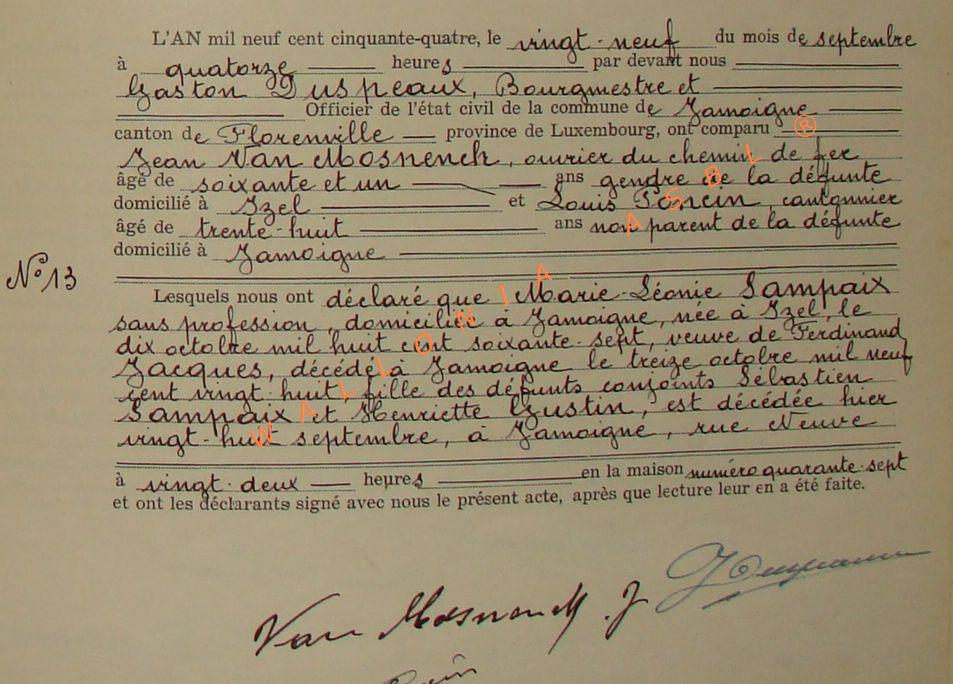 L'AN mil neuf cent cinquante-quatre, le vingt-neuf du mois de septembre
à quatorze heures par devant nous
Gaston Duspeaux, Bourgmestre et
Officier de l'état civil de la commune de Jamoigne
canton de Florenville province de Luxembourg, ont comparu
Jean Van Mosnenck, ouvrier du chemin de fer
âgé de soixante et un ans gendre de la défunte
domicilié à Izel et Louis Poncin, cantonnier
âgé de trente-huit ans non parent de la défunte
domicilié à Jamoigne
N° 13
Lesquels nous ont déclaré que Marie-Léonie Sampaix
sans profession, domiciliée à Jamoigne, née à Izel, le
dix octobre mil huit cent soixante-sept, veuve de Ferdinand
Jacques, décédé à Jamoigne le treize octobre mil neuf
cent vingt-huit, fille des défunts conjoints Sébastien
Sampaix et Henriette Gustin, est décédée hier
vingt-huit septembre, à Jamoigne, rue Neuve
à vingt-deux heures en la maison numéro quarante-sept
et ont les déclarants signé avec nous le présent acte, après que lecture leur en a été faite.
Van Mosnenck J
WALLONIA ASBL ®